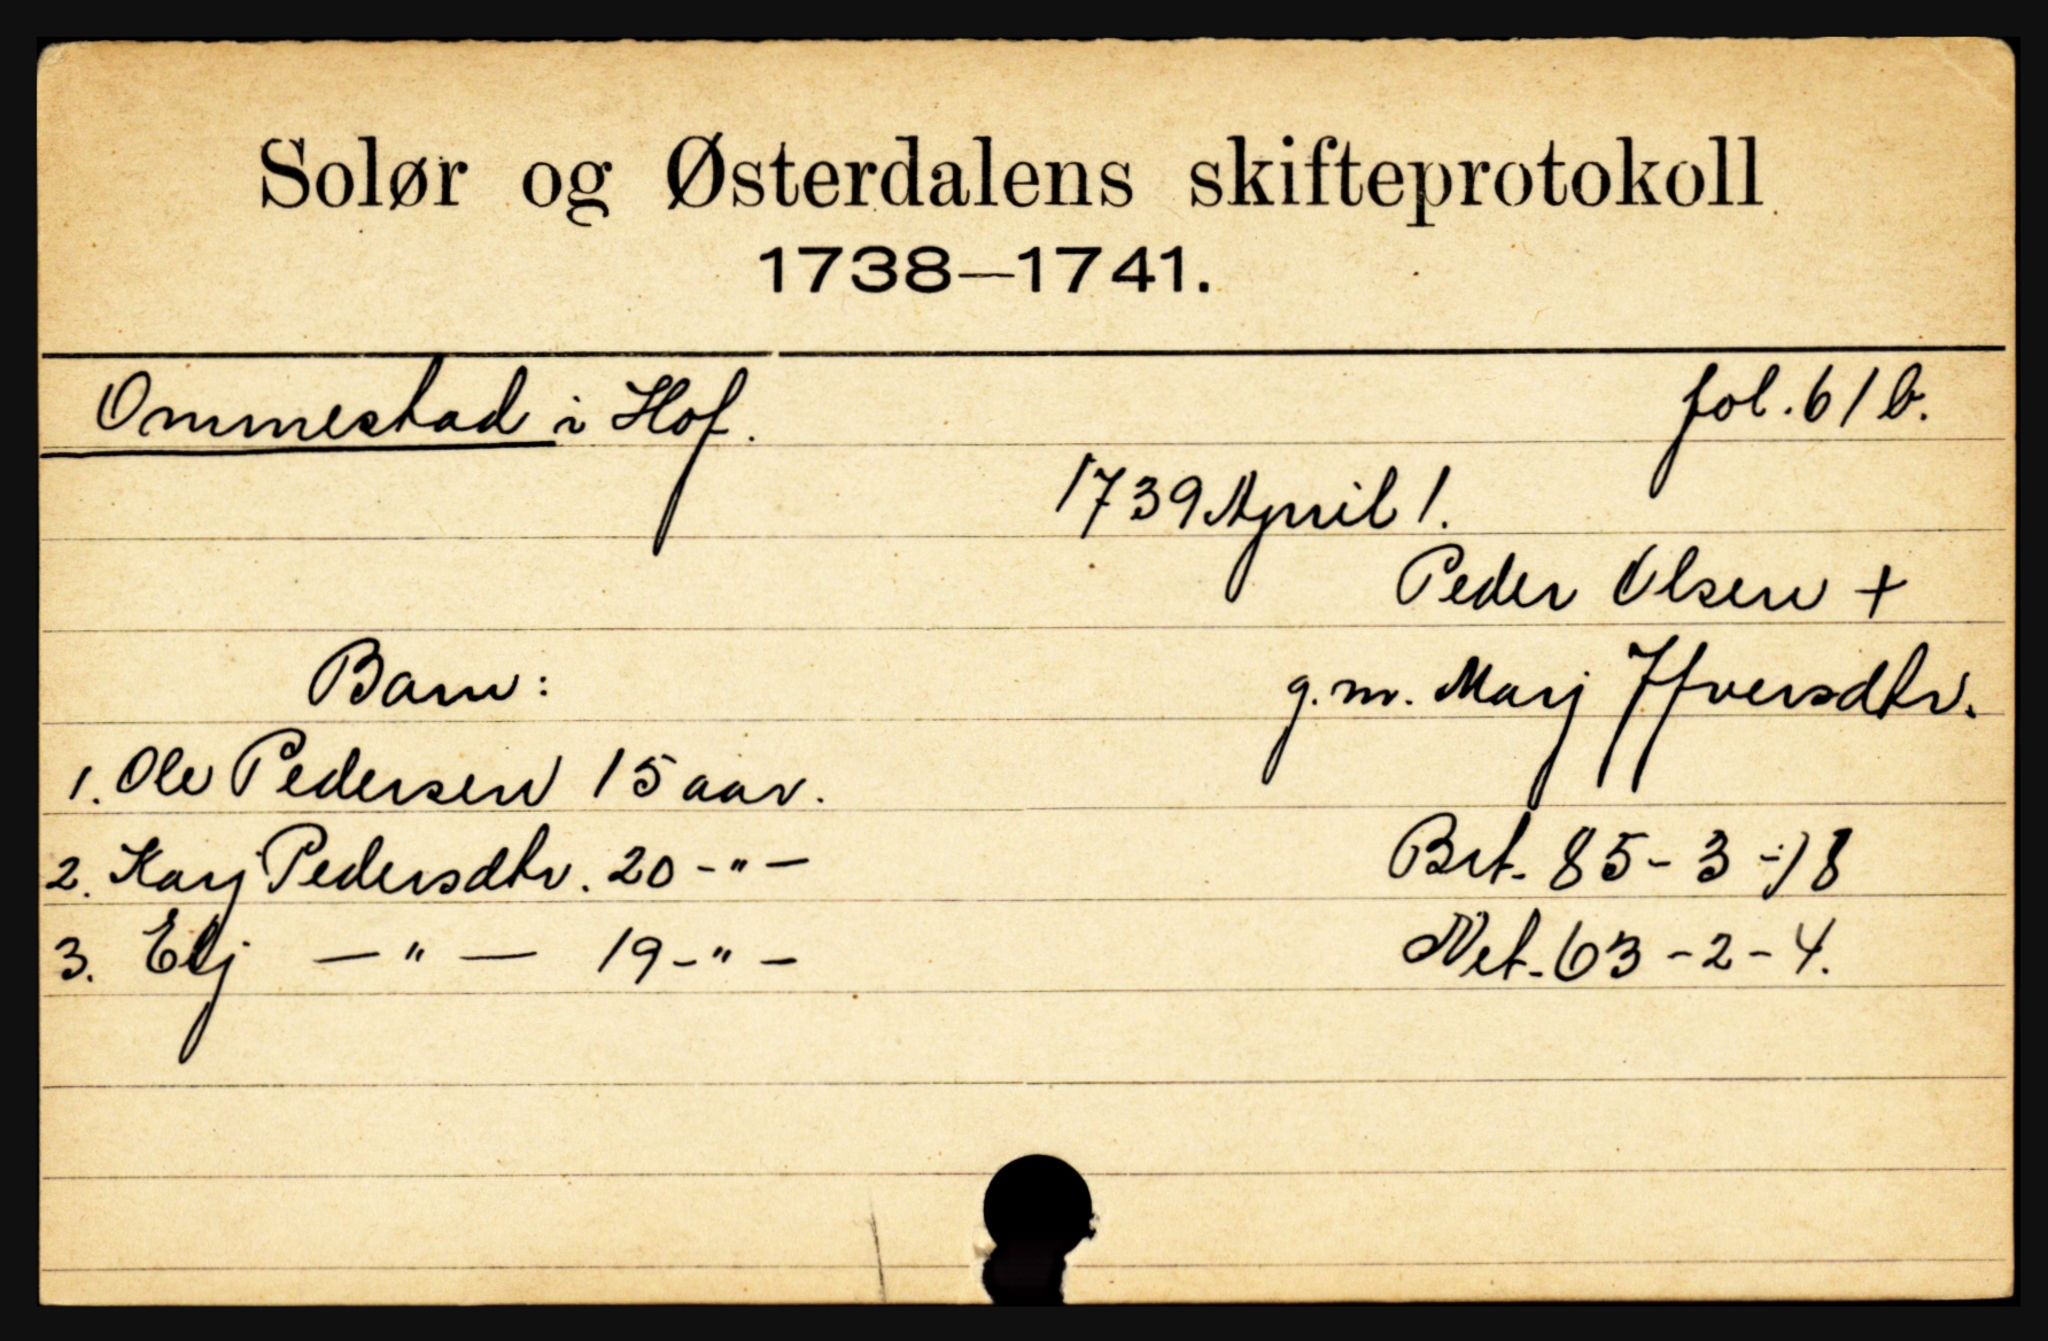 Solør og Østerdalens skifteprotokoll
1738—1741.
Ommestad i Hof.
fol. 61b.
1739 April 1.
Peder Olsen +
g.m. Marj Ifversdtr.
Barn:
1. Ole Pedersen 15 aar.
2. Karj Pedersdtr. 20 - " -
3. Elj — " — 19 - " -
Brt. 85 - 3 - 18
Net. 63 - 2 - 4.